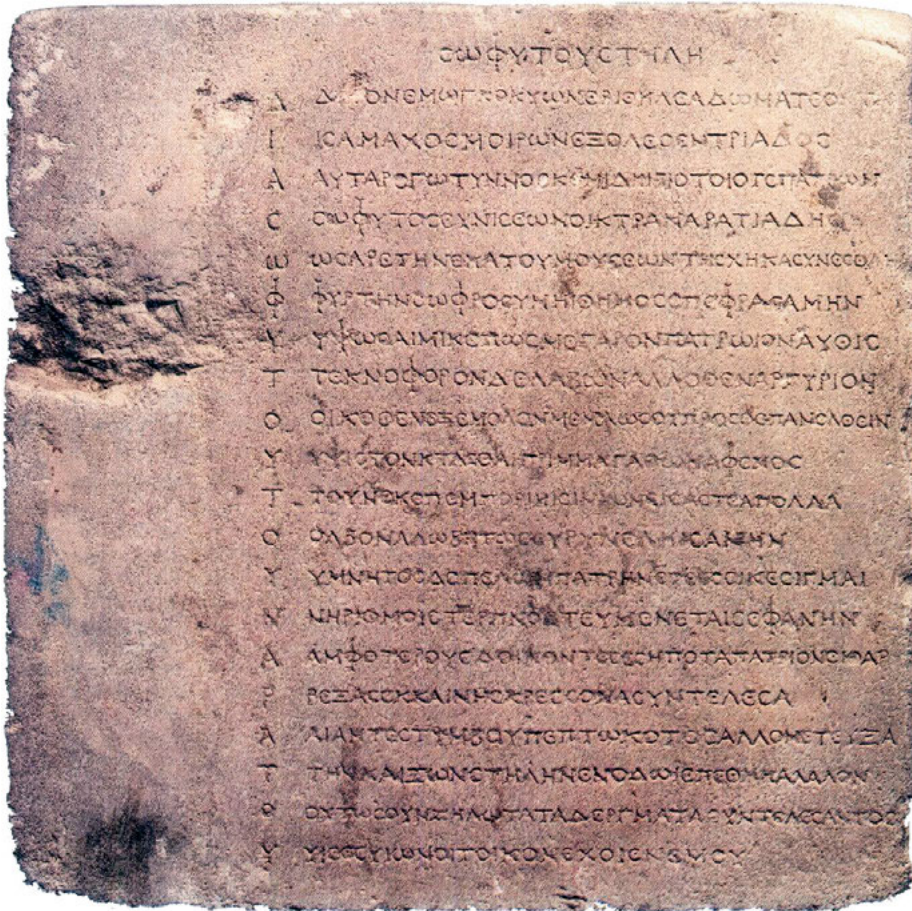 ϹωΦΥΤΟΥϹΤΗΛΗ
Δ ΔΗΡΟΝΕΜωΓΚΟΚΥωΝΕΡΙΘΗΛΕΑΔωΜΑΤΕΟΝΤΑ
Ι ΙϹΑΜΑΧΟϹΜΟΙΡωΝΕΞΟΛΕϹΕΝΤΡΙΑΔΟϹ
Α ΑΥΤΑΡΕΓωΤΥΝΝΟϹΚΟΜΙΔΗΙΒΙΟΤΟΙΟΤΕΠΑΤΡωΝ
Ϲ ϹωΦΥΤΟϹΕΥΝΙϹΕωΝΟΙΚΤΡΑΝΑΡΑΤΙΑΔΗϹ
ω ωϹΑΡΕΤΗΝΕΚΑΤΟΥΜΟΥϹΕωΝΤΗϹΧΗΚΑϹΥΝΕϹΘΛΗΙ
Φ ΦΥΡΤΗΝϹωΦΡΟϹΥΝΗΙΘΗΜΟϹΕΠΕΦΡΑϹΑΜΗΝ
Υ ΥΨωϹΑΙΜΙΚΕΠωϹΜΕΓΑΡΟΝΠΑΤΡωΙΟΝΑΥΘΙϹ
Τ ΤΕΚΝΟΦΟΡΟΝΔΕΛΑΒωΝΑΛΛΟΘΕΝΑΡΓΥΡΙΟΝ
Ο ΟΙΚΟΘΕΝΕΞΕΜΟΛΟΝΜΕΜΑωϹΟΥΠΡΟϹΘΕΠΑΝΕΛΘΕΙΝ
Υ ΥΨΙϹΤΟΝΚΤΑϹΘΑΙΠΡΙΜΜΑΓΑΘωΝΑΦΕΝΟϹ
Τ ΤΟΥΝΕΚΕΠΕΜΠΟΡΙΗΙϹΙΝΙωΝΕΙϹΑϹΤΕΑΠΟΛΛΑ
Ο ΟΛΒΟΝΑΛωΒΗΤωϹΕΥΡΥΝΕΛΗΙϹΑΜΗΝ
Υ ΥΜΝΗΤΟϹΔΕΠΕΛωΝΠΑΤΡΗΝΕΤΕΕϹϹΙΝΕϹΙΓΜΑΙ
Ν ΝΗΡΙΘΜΟΙϹΤΕΡΠΝΟϹΤΕΥΜΕΝΕΤΑΙϹΕΦΑΝΗΝ
Α ΑΜΦΟΤΕΡΟΥϹΔΟΙΚΟΝΤΕϹΕϹΗΠΟΤΑΠΑΤΡΙΟΝΕΙΘΑΡ
Ρ ΡΕΞΑϹΕΚΚΑΙΝΗϹΚΡΕϹϹΟΝΑϹΥΝΤΕΛΕϹΑ
Α ΑΙΑΝΤΕϹΤΥΜΒΟΥΠΕΠΤωΚΟΤΟϹΑΛΛΟΝΕΤΕΥΞΑ
Τ ΤΗΝΚΑΙΖωΝϹΤΗΛΗΝΕΝΟΔωΙΕΠΕΘΗΚΑΛΑΛΟΝ
Ο ΟΥΤωϹΟΥΝΖΗΛωΤΑΤΑΔΕΡΓΜΑΤΑϹΥΝΤΕΛΕϹΑΝΤΟϹ
Υ ΥΙΕΕϹΥΙωΝΟΙΤΟΙΚΟΝΕΧΟΙΕΝΕΜΟΥ